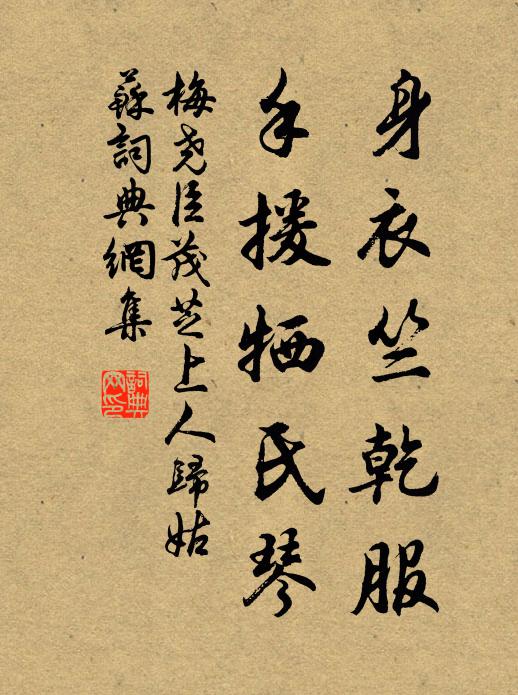 身衣竺乾服
手援牺氏琴
梅尧臣茂芝上人歸姑
蘇詞典網集
詞典网印